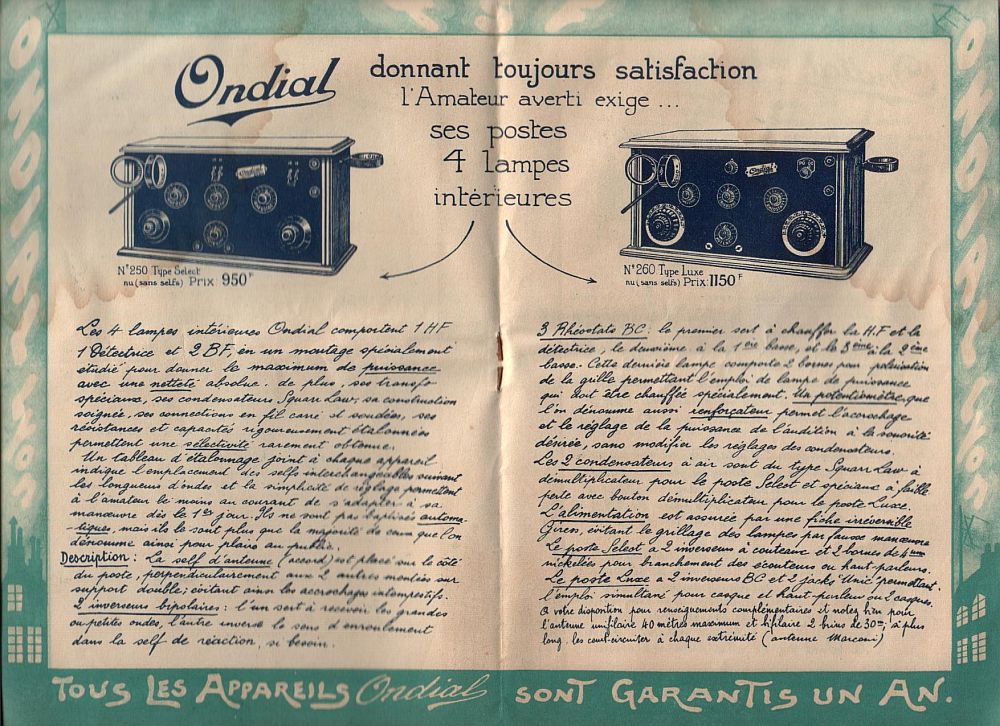 Ondial
donnant toujours satisfaction
l'Amateur averti exige ...
ses postes
4 Lampes
intérieures
N° 250 Type Select
nu (sans selfs) Prix 950F
N° 260 Type Luxe
nu (sans selfs) Prix: 1150F
Les 4 lampes intérieures Ondial comportent 1 HF
1 Détectrice et 2 BF, en un montage spécialement
étudié pour donner le maximum de puissance
avec une netteté absolue. de plus, ses transfo
spéciaux, ses condensateurs Square Law, sa construction
soignée, ses connections en fil carré et soudées, ses
résistances et capacités rigoureusement étalonnées
permettent une sélectivité rarement obtenue.
Un tableau d'étalonnage joint à chaque appareil
indique l'emplacement des selfs interchangeables suivant
les longueurs d'ondes et la simplicité de réglage permettent
à l'amateur le moins au courant de s'adapter à sa
manœuvre dès le 1er jour. Ils ne sont pas baptisés automa-
-tiques, mais ils le sont plus que la majorité de ceux que l'on
dénomme ainsi pour plaire au public.
Description : La self d'antenne (accord) est placé sur le côté
du poste, perpendiculairement aux 2 autres montées sur
support double; évitant ainsi les accrochages intempestifs.
2 inverseurs bipolaires : l'un sert à recevoir les grandes
ou petites ondes, l'autre inverse le sens d'enroulement
dans la self de réaction, si besoin.
3 Rhéostats BC : le premier sert à chauffer la H.F et la
détectrice, le deuxième à la 1ère basse, et le 3ème à la 2ème
basse. Cette dernière lampe comporte 2 bornes pour polarisation
de la grille permettant l'emploi de lampe de puissance
qui doit être chauffée spécialement. Un potentiomètre que
l'on dénomme aussi renforçateur permet l'accrochage
et le réglage de la puissance de l'audition à la sonorité
désirée, sans modifier les réglages des condensateurs.
Les 2 condensateurs à air sont du type Square Law à
démultiplicateur pour le poste Select et spéciaux à faible
perte avec bouton démultiplicateur pour le poste Luxe.
L'alimentation est assurée par une fiche irréversible
évitant le grillage des lampes par fausse manœuvre
Le poste Select a 2 inverseurs à couteaux et 2 bornes de 4 mm
nickelées pour branchement des écouteurs ou haut-parleurs.
Le poste Luxe a 2 inverseurs BC et 2 jacks "Unic" permettant
l'emploi simultané pour casque et haut-parleur ou 2 casques.
A votre disposition pour renseignements complémentaires et notez bien pour
l'antenne unifilaire 40 mètres maximum et bifilaire 2 brins de 30m, si plus
long, les court-circuiter à chaque extrémité (antenne Marconi)
TOUS LES APPAREILS Ondial SONT GARANTIS UN AN.